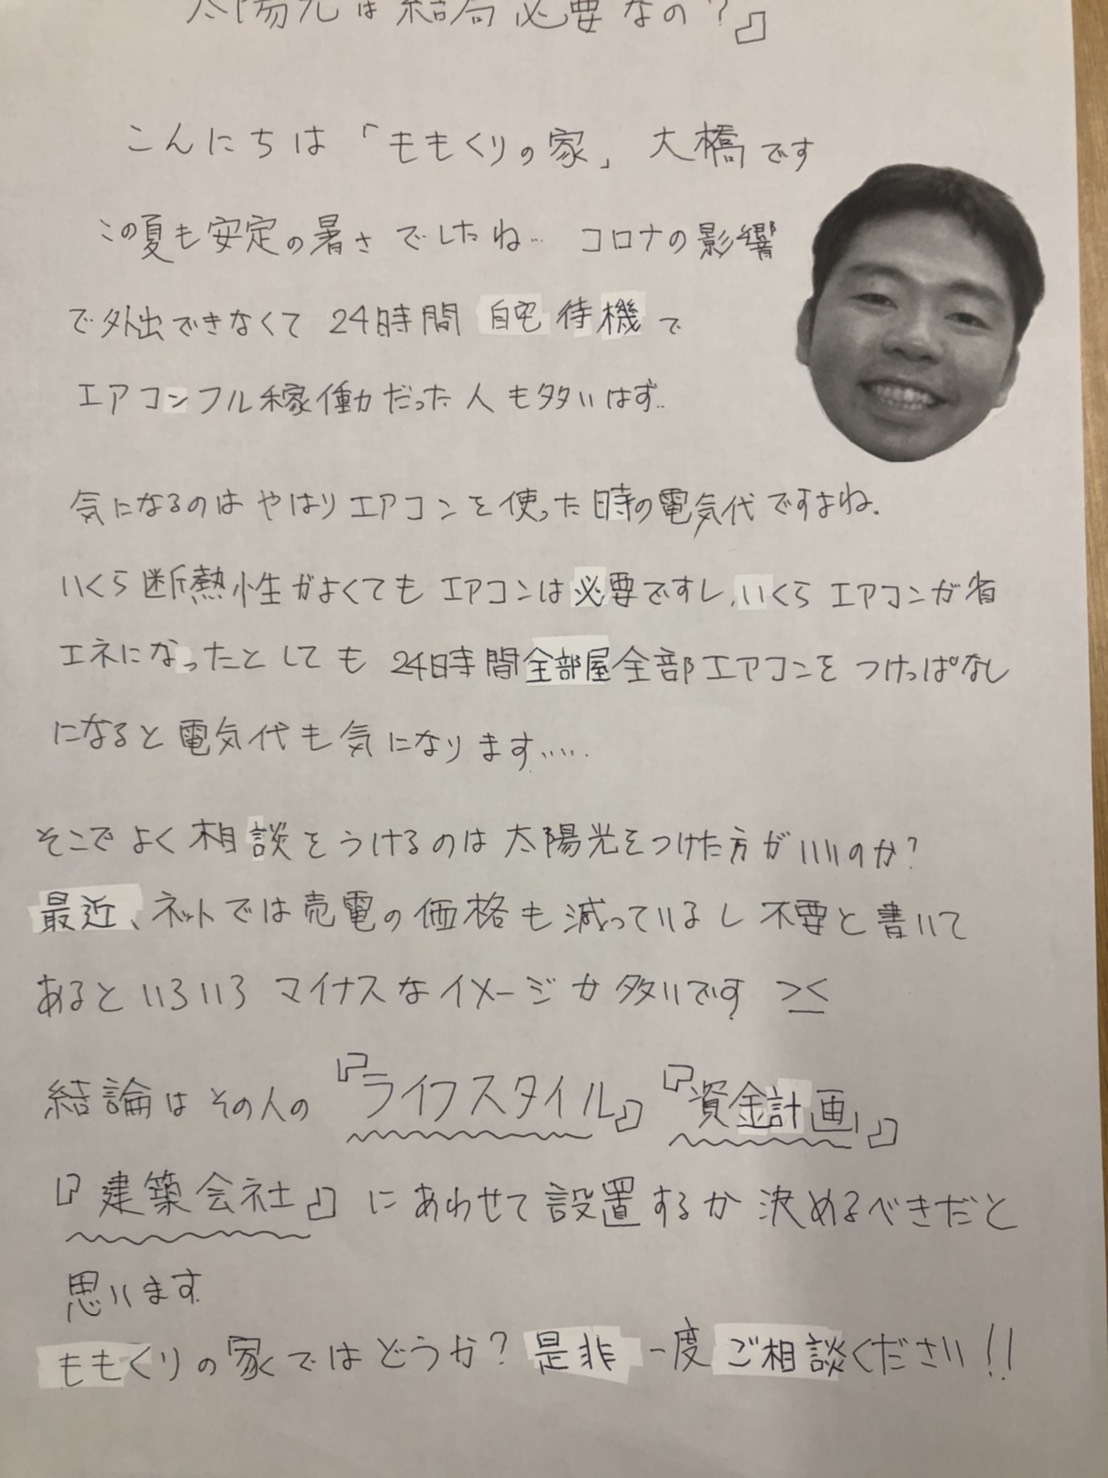 太陽光は結局必要なの?』
こんにちは「ももくりの家」大橋です
この夏も安定の暑さでしたね… コロナの影響
で外出できなくて24時間自宅待機で
エアコンフル稼働だった人も多いはず..
気になるのはやはりエアコンを使った時の電気代ですよね.
いくら断熱性がよくてもエアコンは必要ですし、いくらエアコンが省
エネになったとしても24時間全部屋全部エアコンをつけっぱなし
になると電気代も気になります.....
そこでよく相談をうけるのは太陽光をつけた方がいいのか?
最近、ネットでは売電の価格も減っているし不要と書いて
あるといろいろマイナスなイメージが多いです ><
結論はその人の『ライフスタイル』『資金計画』
『建築会社』にあわせて設置するか決めるべきだと
思います
ももくりの家ではどうか?是非一度ご相談ください!!